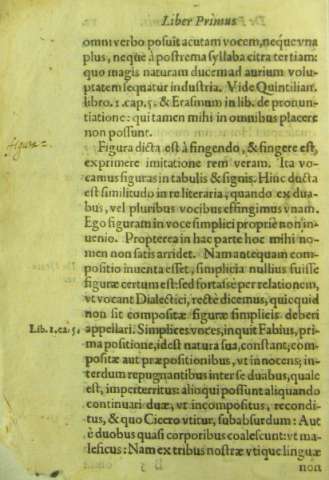 Liber Primus
omni verbo posuit acutam vocem, neque vna
plus, neque à postrema syllaba citra tertiam:
quo magis naturam ducem ad aurium volu-
ptatem sequatur industria. Vide Quintilian.
libro. 1. cap. 5. & Erasmum in lib. de pronun-
tiatione: qui tamen mihi in omnibus placere
non possunt.
figura
Figura dicta est à fingendo, & fingere est,
exprimere imitatione rem veram. Ita vo-
camus figuras in tabulis & signis. Hinc ducta
est similitudo in re literaria, quando ex dua-
bus, vel pluribus vocibus effingimus vnam.
Ego figuram in voce simplici propriè non in-
uenio. Propterea in hac parte hoc mihi no-
men non satis arridet. Nam antequam com-
positio inuenta esset, simplicia nullius fuisse
figuræ certum est: sed fortasse per relationem,
vt vocant Dialectici, rectè dicemus, quicquid
non sit compositæ figuræ simplicis deberi
Lib. 1. ca. 5.
appellari. Simplices voces, inquit Fabius, pri-
ma positione, id est natura sua, constant, com-
positæ aut præpositionibus, vt innocens; in-
terdum repugnantibus inter se duabus, quale
est, imperterritus: alioqui possunt aliquando
continuari duæ, vt incompositus, recondi-
tus, & quo Cicero vtitur, subabsurdum: Aut
è duobus quasi corporibus coalescunt: vt ma-
leficus: Nam ex tribus nostræ vtique linguæ
non